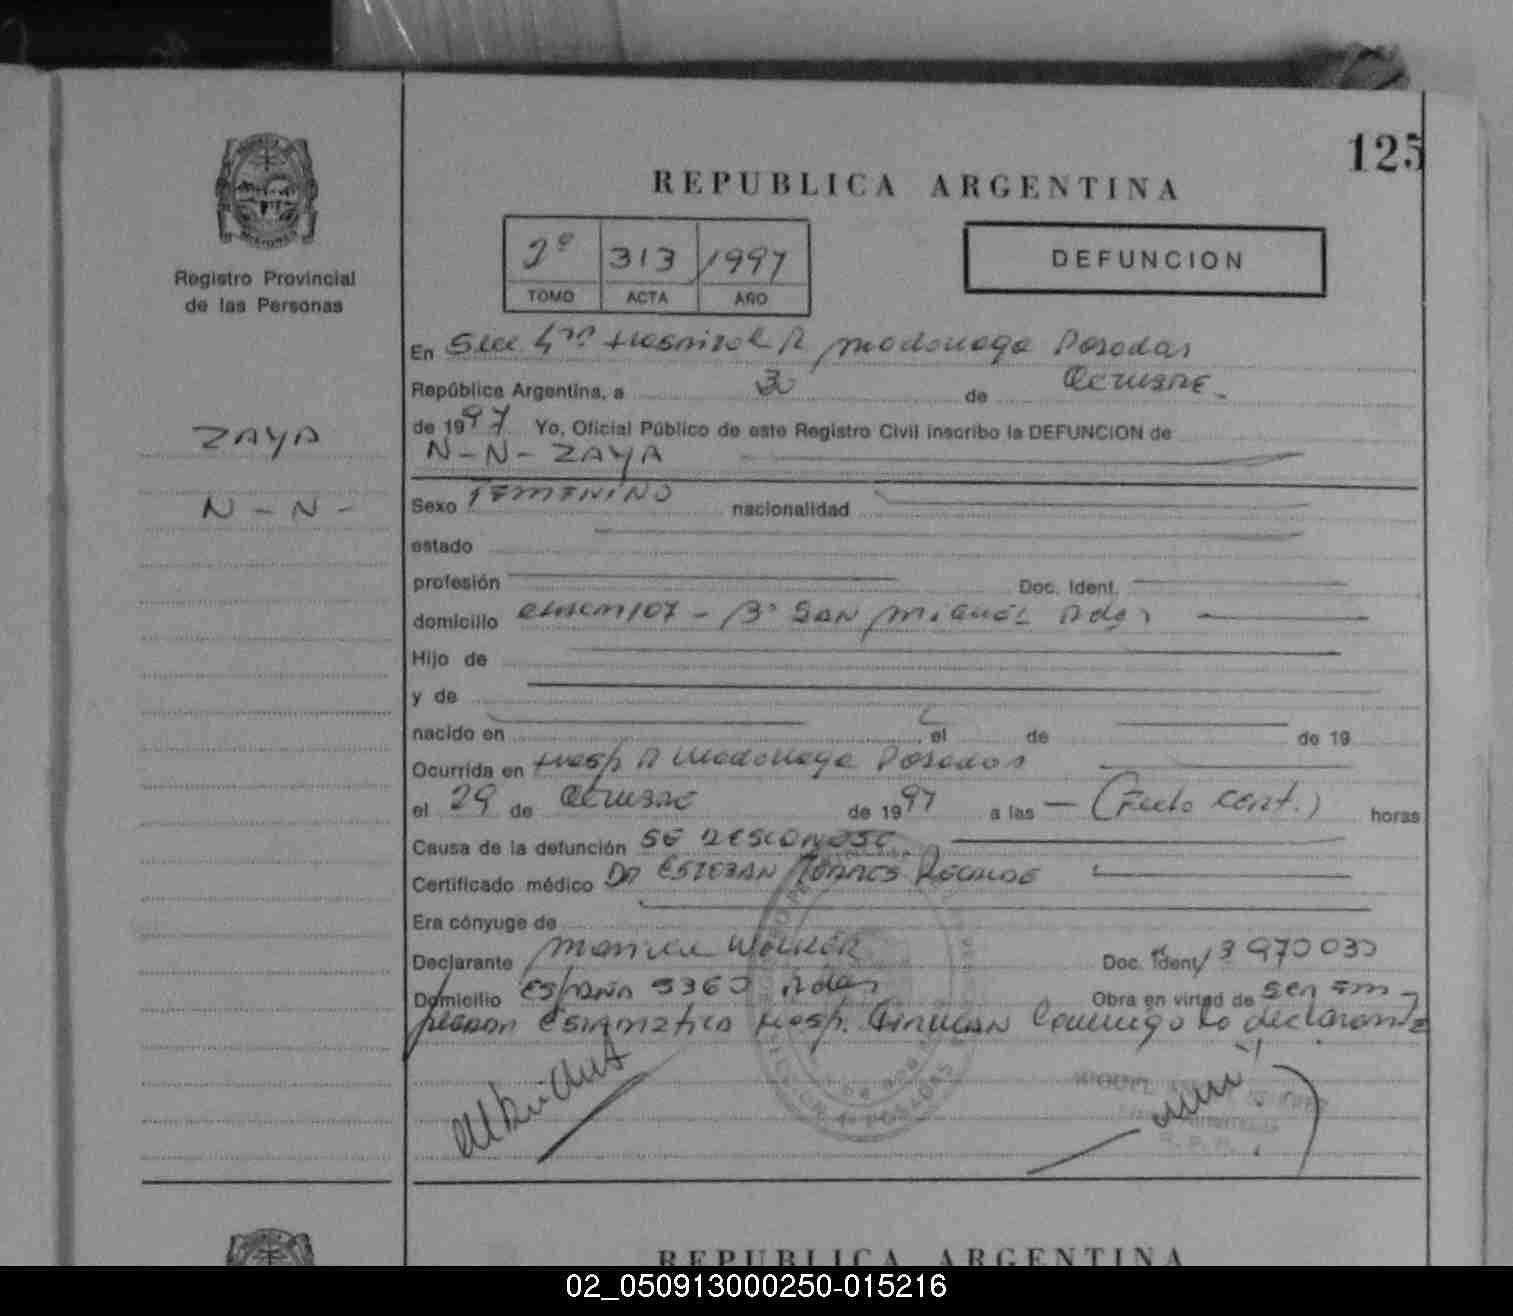 125
REPUBLICA ARGENTINA
2º 313 1997
TOMO ACTA AÑO
DEFUNCION
Registro Provincial
de las Personas
En Secc 4ta Hospital R Madariaga Posadas
República Argentina, a 30 de Octubre
de 1997 Yo, Oficial Público de este Registro Civil inscribo la DEFUNCION de
ZAYA
N-N- ZAYA
N-N-
Sexo FEMENINO nacionalidad
estado
profesión Doc. Ident.
domicilio 107 - Bº SAN MIGUEL Pdas
Hijo de
y de
nacido en el de de 19
Ocurrida en Hosp R Madariaga Posadas
el 29 de Octubre de 1997 a las — (Feto cont.) horas
Causa de la defunción SE DESCONOSE
Certificado médico Dr ESTEBAN TORRES RECALDE
Era cónyuge de
Declarante Doc. Ident 13970030
Domicilio España Pdas Obra en virtud de ser em-
Hosp. Conmigo lo declarante
SECCION 4ª POSADAS
MIGUEL
REPUBLICA ARGENTINA
02_050913000250-015216